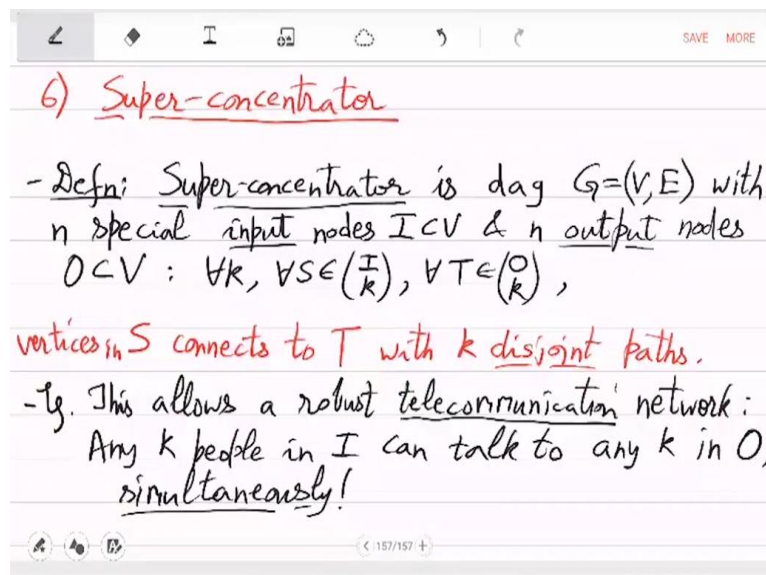 SAVE MORE
6) Super-concentrator
- Defn: Super-concentrator is dag G=(V,E) with
n special input nodes I⊂V & n output nodes
O⊂V : ∀k, ∀S∈(I k), ∀T∈(O k),
vertices in S connects to T with k disjoint paths.
- Eg. This allows a robust telecommunication network :
Any k people in I can talk to any k in O,
simultaneously!
< 157/157 +